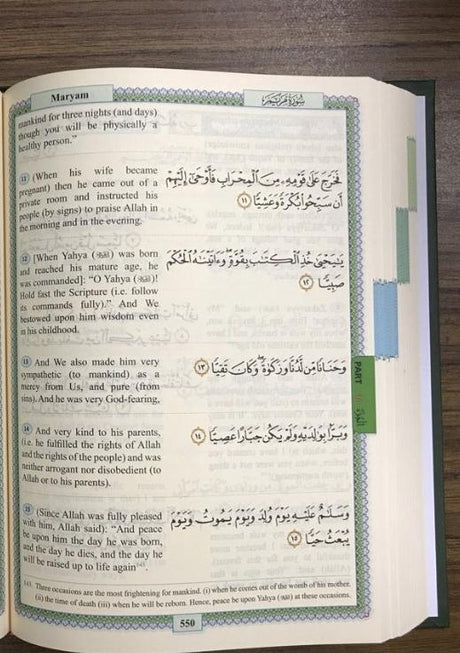 Maryam
سُورَةُ مَرْيَمَ
mankind for three nights (and days)
though you will be physically a
healthy person."
11 (When his wife became
pregnant) then he came out of a
private room and instructed his
people (by signs) to praise Allah in
the morning and in the evening.
فَخَرَجَ عَلَىٰ قَوْمِهِۦ مِنَ ٱلْمِحْرَابِ فَأَوْحَىٰٓ إِلَيْهِمْ
أَن سَبِّحُوا۟ بُكْرَةً وَعَشِيًّا ١١
12 [When Yahya (ﷺ) was born
and reached his mature age, he
was commanded]: "O Yahya (ﷺ)!
Hold fast the Scripture (i.e. follow
its commands fully)." And We
bestowed upon him wisdom even
in his childhood.
يَـٰيَحْيَىٰ خُذِ ٱلْكِتَـٰبَ بِقُوَّةٍ ۖ وَءَاتَيْنَـٰهُ ٱلْحُكْمَ
صَبِيًّا ١٢
13 And We also made him very
sympathetic (to mankind) as a
mercy from Us, and pure (from
sins). And he was very God-fearing,
وَحَنَانًا مِّن لَّدُنَّا وَزَكَوٰةً ۖ وَكَانَ تَقِيًّا ١٣
14 And very kind to his parents,
(i.e. he fulfilled the rights of Allah
and the rights of the people) and was
neither arrogant nor disobedient (to
Allah or to his parents).
وَبَرًّۢا بِوَٰلِدَيْهِ وَلَمْ يَكُن جَبَّارًا عَصِيًّا ١٤
15 (Since Allah was fully pleased
with him, Allah said): "And peace
be upon him the day he was born,
and the day he dies, and the day he
will be raised up to life again"
وَسَلَـٰمٌ عَلَيْهِ يَوْمَ وُلِدَ وَيَوْمَ يَمُوتُ وَيَوْمَ
يُبْعَثُ حَيًّا ١٥
Three occasions are the most frightening for mankind. (i) when he comes out of the womb of his mother.
(ii) the time of death (iii) when he will be reborn. Hence, peace be upon Yahya (ﷺ) at these occasions.
550
PART
الجزء